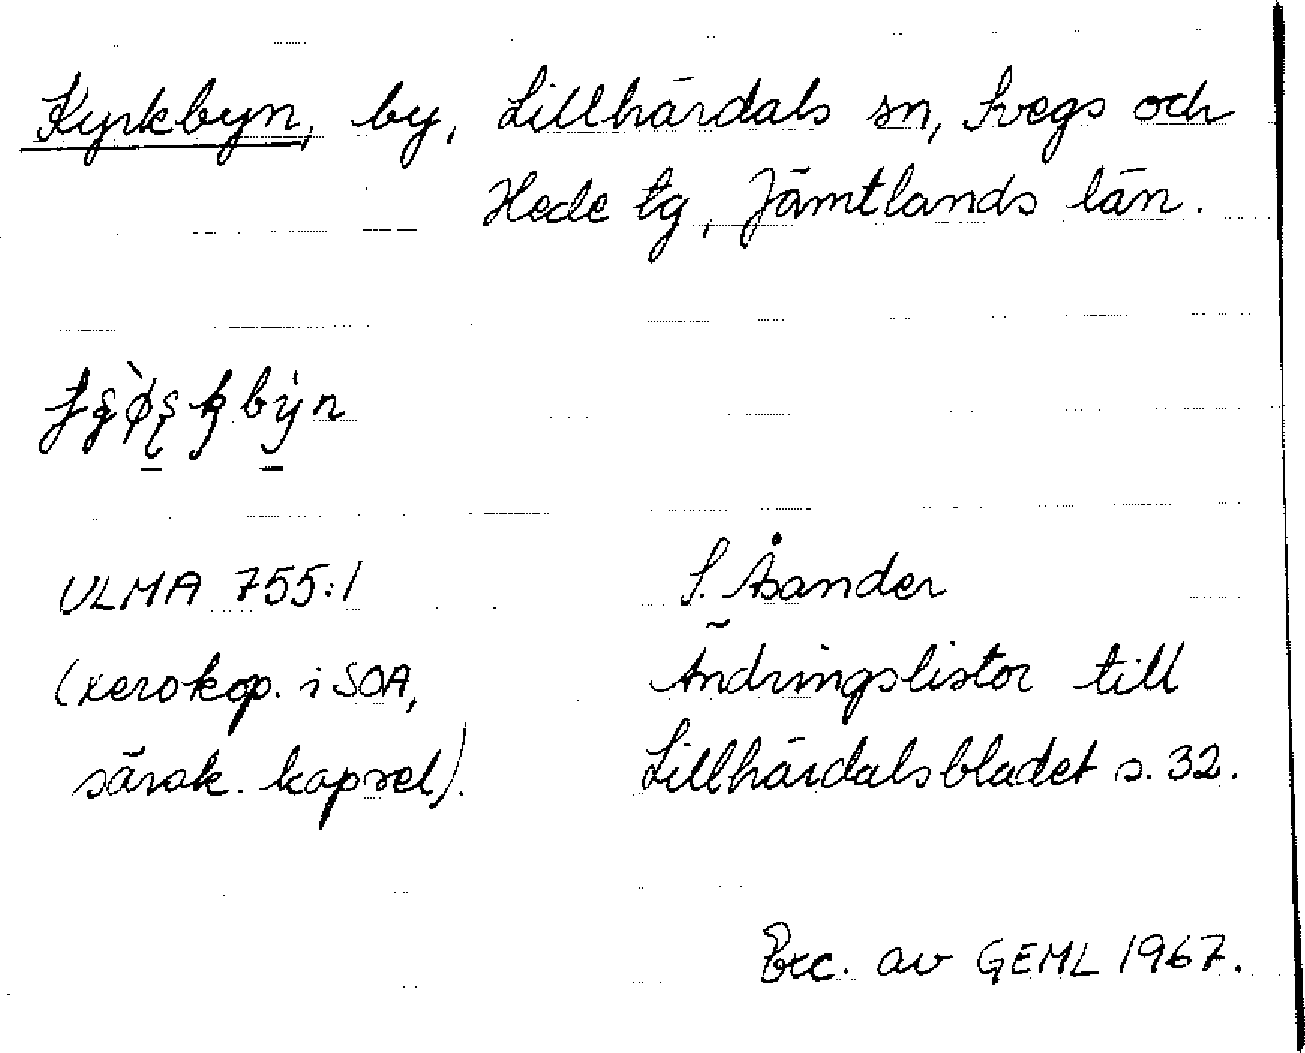 Kyrkbyn, by, Lillhärdals sn, Svegs och
Hede tg, Jämtlands län.
ULMA 755:1
(xerokop. i SOA,
särsk. kapsel).
S. Åsander
Ändringslistor till
Lillhärdalsbladet s. 32.
Exc. av GEML 1967.